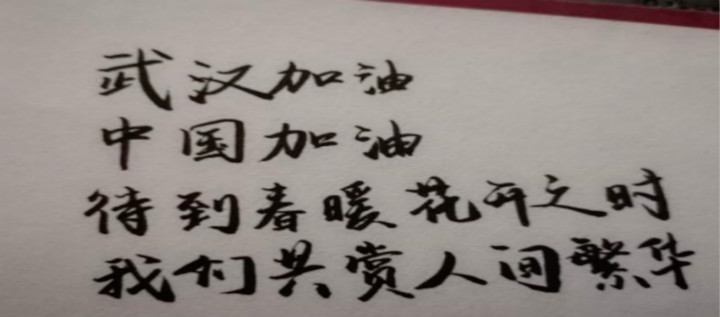 武汉加油
中国加油
待到春暖花开之时
我们共赏人间繁华